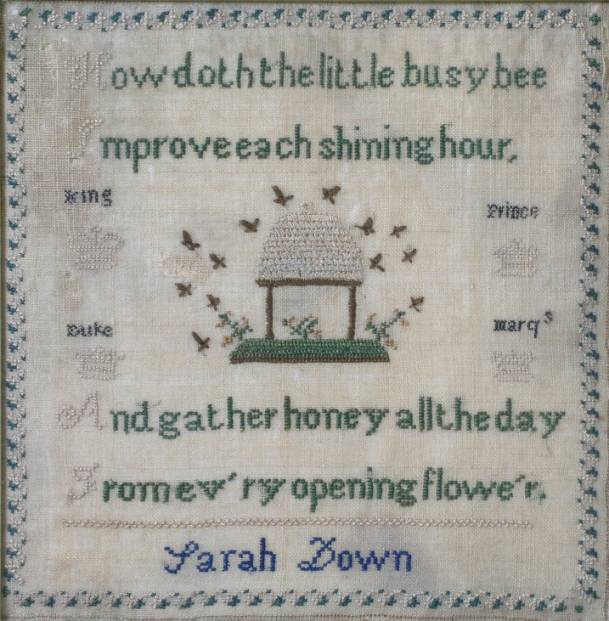 How doth the little busy bee
Improve each shining hour,
King
Prince
Duke
marqs
And gather honey all the day
From ev'ry opening flowe'r.
Sarah Down